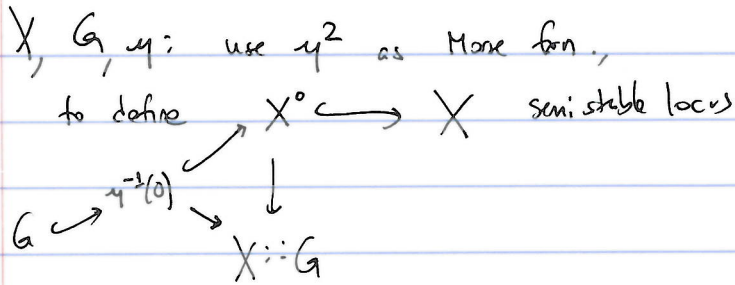 X, G, μ: use μ² as Morse fcn.,
to define X° ↪ X semistable locus
G ↪ μ⁻¹(0)
X∴·G